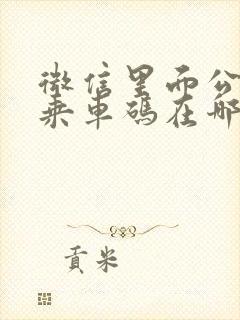 微信里面公
乘车码在哪
贡米